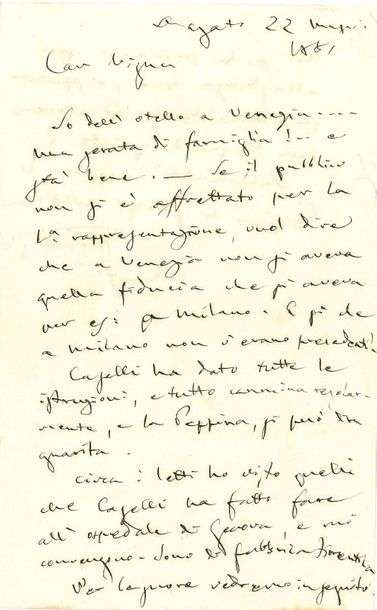 S. Agata 22 Maggio
1887
Car Vigna
So dell'Otello a Venezia....
una serata di famiglia!.. e
sta bene. — Se il pubblico
non si è affrettato per la
1ª rappresentazione, vuol dire
che a Venezia non si aveva
quella fiducia che si aveva
per es: a Milano. E si che
a Milano non v'erano precedenti!
Caselli ha dato tutte le
istruzioni, e tutto cammina regolar-
mente, e la Peppina, si può dir
guarita.
Circa i letti ho visto quelli
che Caselli ha fatto fare
all'ospedale di Genova, e mi
convengono. Sono di fabbrica fiorentina
Per le suore vedremo in seguito.